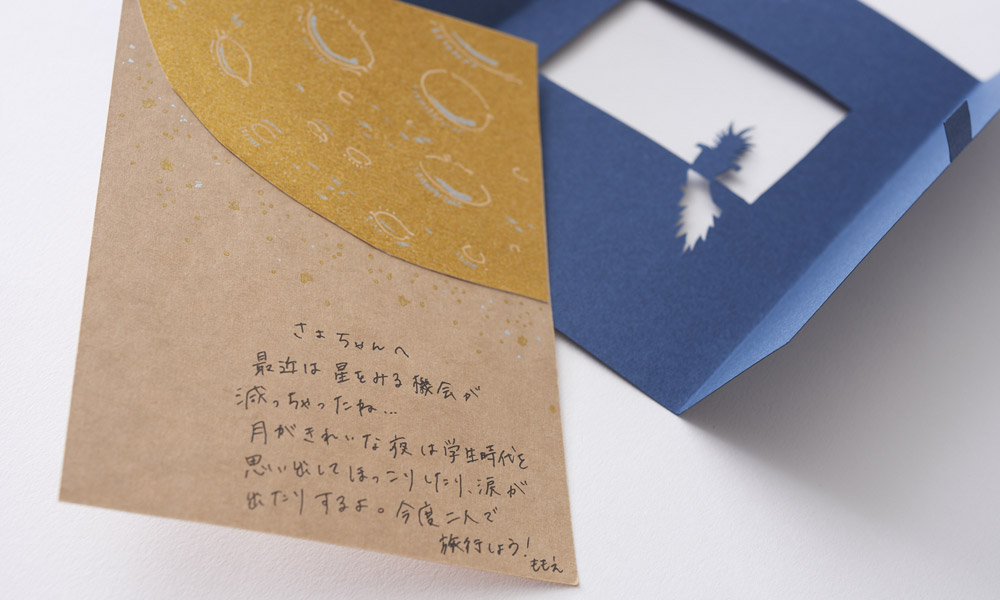 さよちゃんへ
最近は星をみる機会が
減っちゃったね…
月がきれいな夜は学生時代を
思い出してほっこりしたり、涙が
出たりするよ。今度二人で
旅行しよう!
ももえ